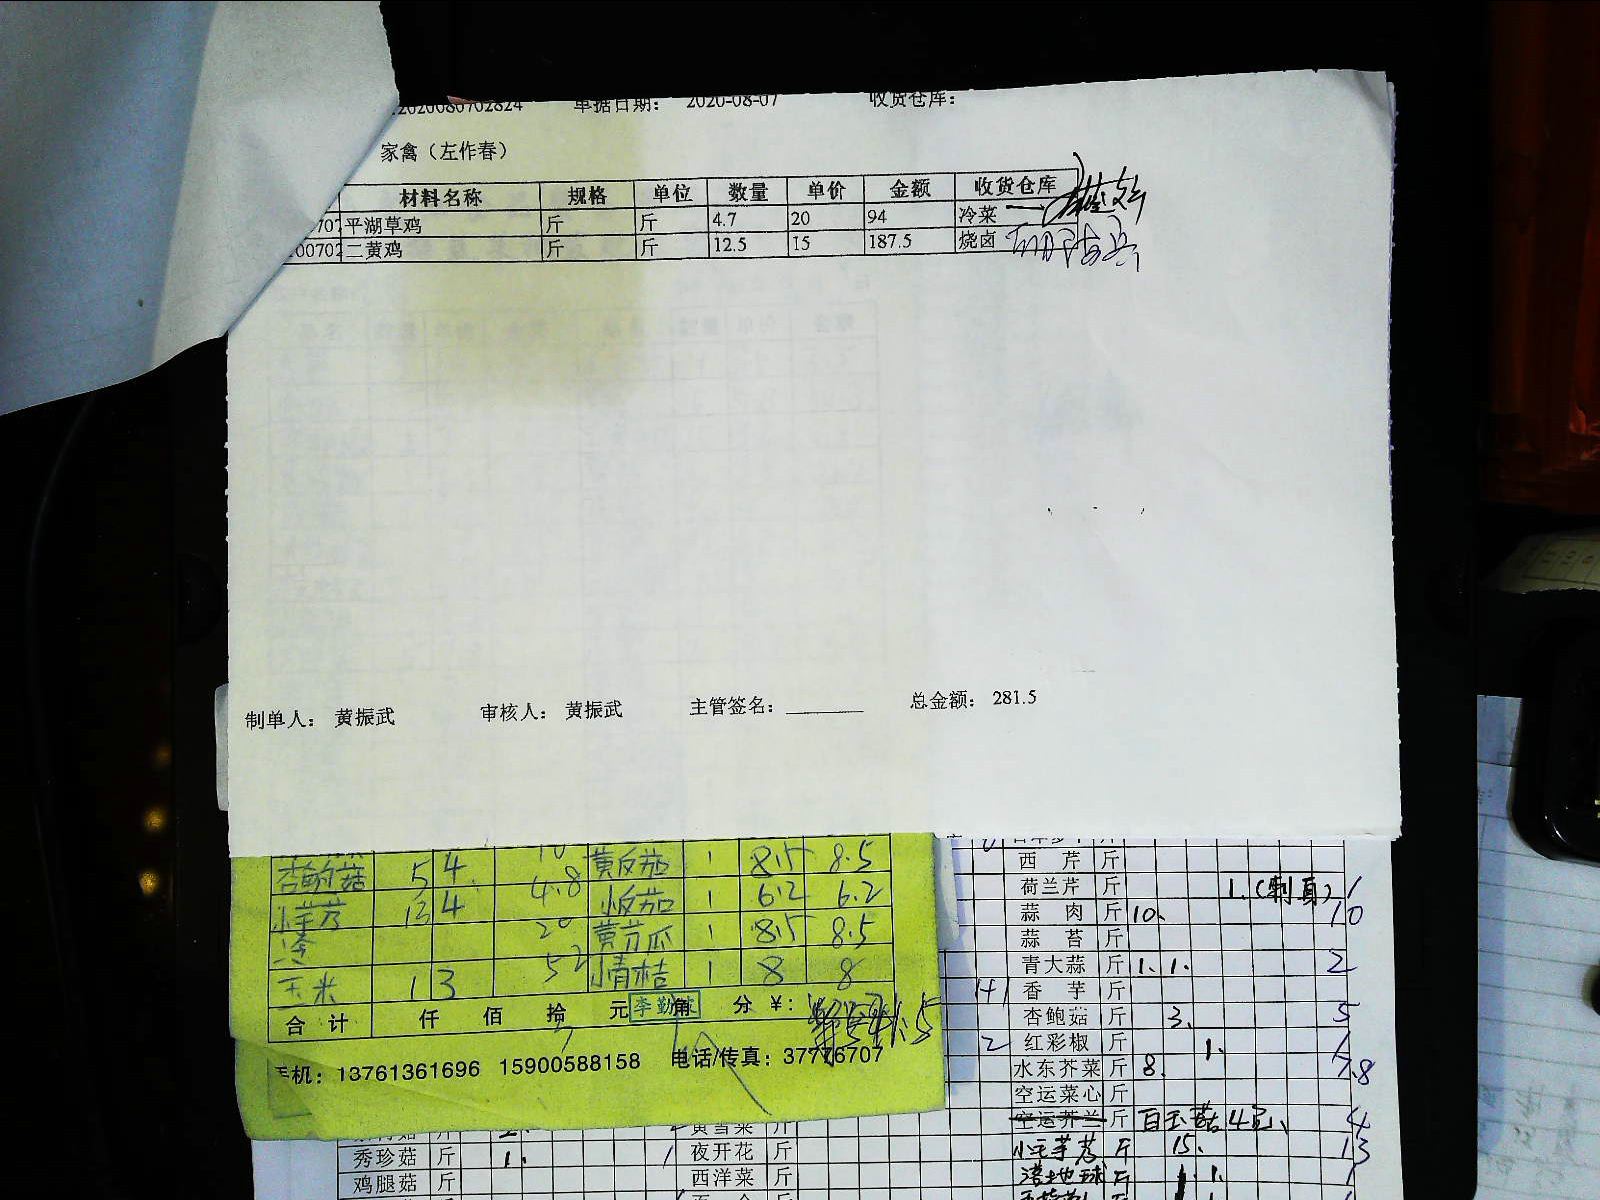 2020080702824 单据日期： 2020-08-07 收货仓库：
家禽（左作春）
材料名称 规格 单位 数量 单价 金额 收货仓库
平湖草鸡 斤 斤 4.7 20 94 冷菜
00702 二黄鸡 斤 斤 12.5 15 187.5 烧卤
制单人： 黄振武 审核人： 黄振武 主管签名： 总金额： 281.5
杏鲍菇 5 4 黄皮茄 1 8.5 8.5
小芋艿 13 4 4.8 小皮茄 1 6.2 6.2
20 黄节瓜 1 8.5 8.5
玉米 1 3 52 小青桔 1 8 8
合计 仟 佰 拾 元 角 分 ￥：
李勤
手机：13761361696 15900588158 电话/传真：37776707
西芹 斤
荷兰芹 斤 1.(刺身) 1
蒜肉 斤 10. 10
蒜苔 斤
青大蒜 斤 1. 1. 2
香芋 斤
杏鲍菇 斤 3. 5
2 红彩椒 斤 1. 1
水东芥菜 斤 8. 7.8
空运菜心 斤
空运芥兰 斤 白玉菇4包 4
小毛芋艿 斤 15. 13
斤 1. 1. 1
黄雪菜 斤
秀珍菇 斤 1. 1 夜开花 斤
鸡腿菇 斤 西洋菜 斤